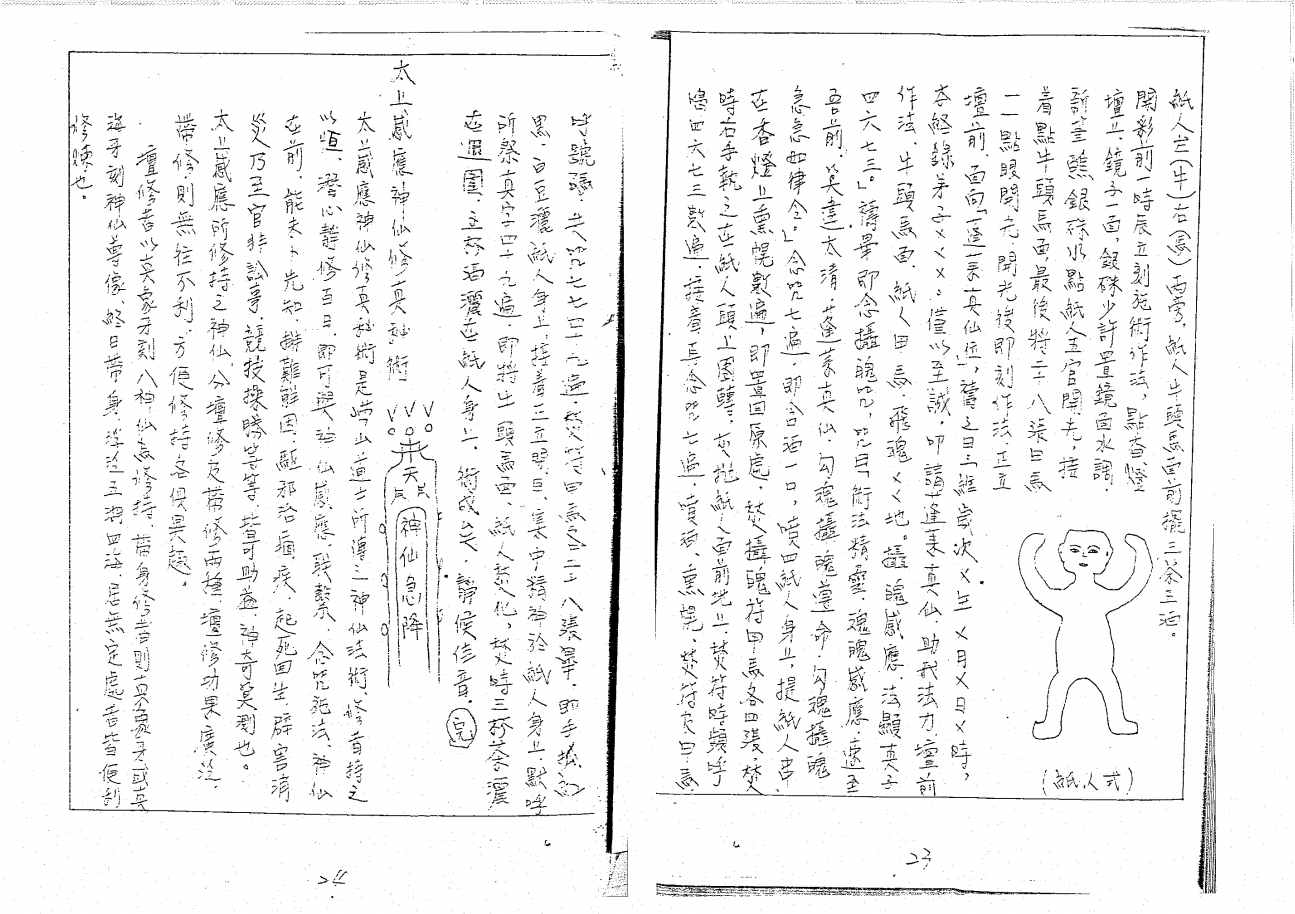 紙人左(牛)右(馬)兩旁，紙人牛頭馬面前擺三茶三酒。
開彩前一時辰立刻施術作法，點香燈
壇上，鏡子一面，銀硃少許置鏡面水調，
新筆醮銀硃水點紙人五官開光，接
着點牛頭馬面最後將二十八張甲馬
一一點眼開光，開光後即刻作法，正立
壇前，面向「蓬萊真仙位」，奮之曰：「維歲次×年×月×日×時，
茶終錄弟子×××，僅以至誠，叩請蓬萊真仙，助我法力，壇前
作法，牛頭馬面，紙人甲馬，飛魂××地。攝魄感應，法顯英子
四六七三。」禱畢即念攝魄咒，咒曰「術法精靈，魂魄感應，速至
吾前，莫違太清，蓬萊真仙，勾魂攝魄遵命，勾魂攝魄
急急如律令。」念咒七遍，即含酒一口，噴四紙人身上，提紙人串
在香燈上熏幌數遍，即置回原處，焚攝魄符甲馬各四張，焚
時右手執之在紙人頭上圈轉，灰批紙人面前地上，焚符時頻呼
鳴四六七三數遍，接着再念咒七遍，賣酒，熏幌，焚符灰甲馬
(紙人式)
23
呼號碼，共咒七七四十九遍，焚符甲馬各二十八張畢，即手抓紅
黑，白豆灑紙人身上，接着正立閉目，集中精神於紙人身上，默呼
所祭真字四十九遍，即將牛頭馬面，紙人焚化，焚時三杯茶灑
在週圍，三杯酒灑在紙人身上，術成矣，靜候佳音。完
太上感應神仙修真秘術
神仙急降
太上感應神仙修真秘術是嶗山道士所傳之神仙法術，修者持之
以恆，潛心靜修百日，即可與神仙感應，聯繫，念咒施法，神仙
在前，能未卜先知，排難解困，驅邪治痼疾，起死回生，辟害消
災乃至官非訟事，競技操勝等等，皆可助益，神奇莫測也。
太上感應所修持之神仙，分壇修及帶修兩種，壇修功果廣泛，
帶修則無往不利，方便修持，各俱異趣。
壇修者以真象牙刻八神仙為修持，帶身修者則真象牙或真
海牙刻神仙尊像，終日帶身，浮泛五湖四海，居無定處者皆便刻
修煉也。
24